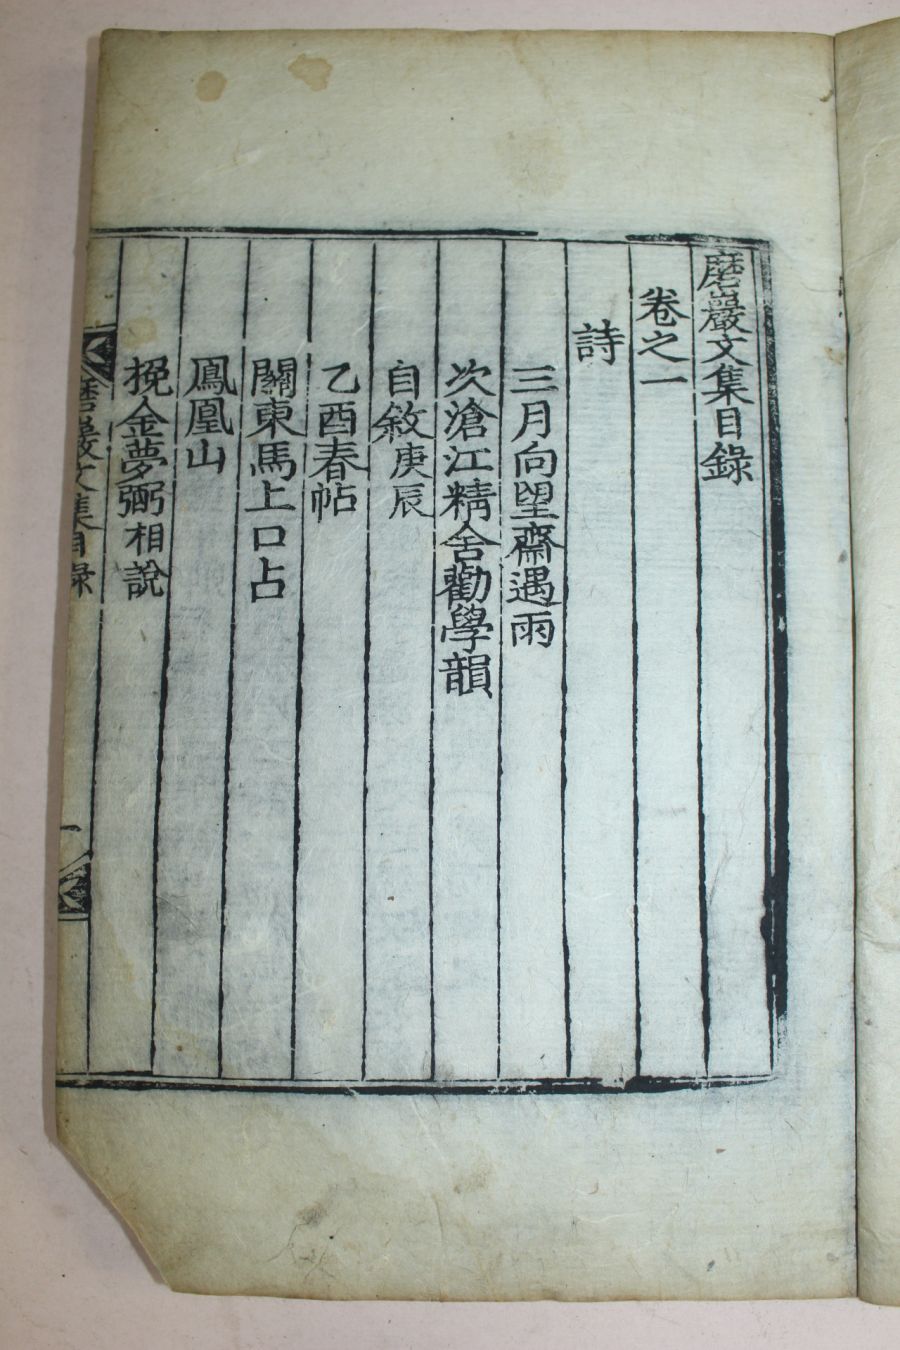 磨巖文集目錄
卷之一
詩
三月向望齋遇雨
次滄江精舍勸學韻
自敘庚辰
乙酉春帖
關東馬上口占
鳳凰山
挽金夢弼相說
磨巖文集目錄 一